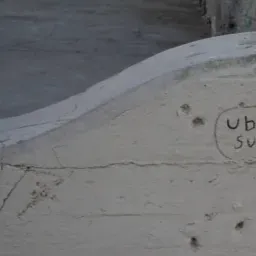 ub
su